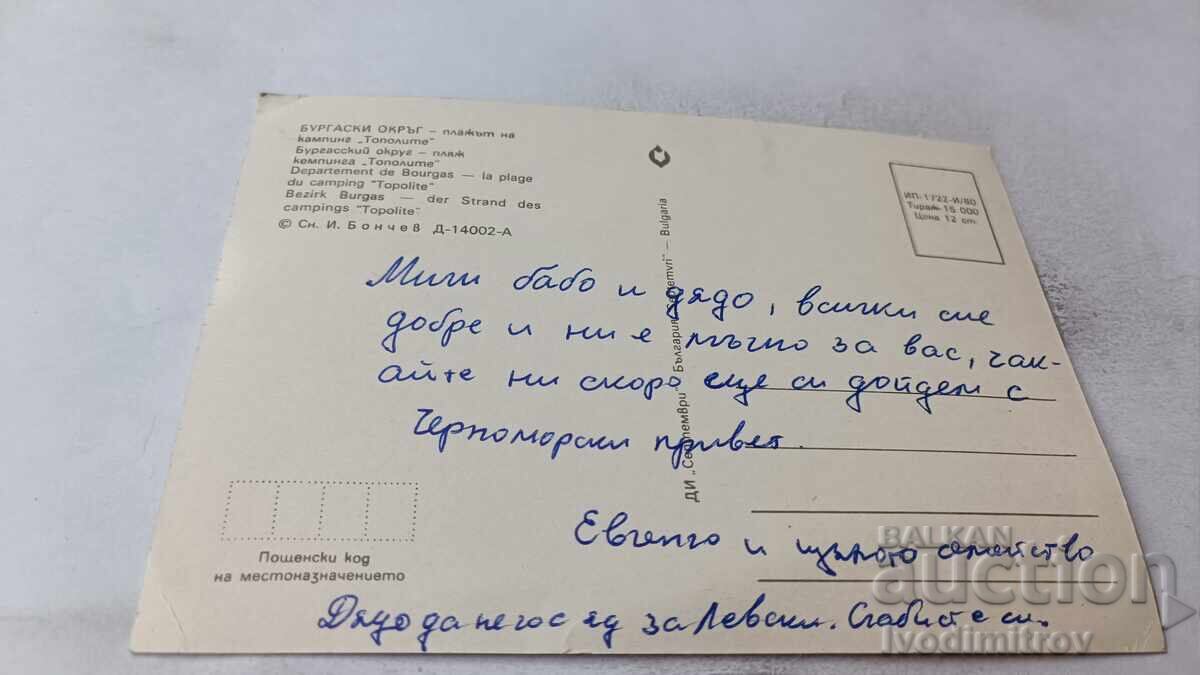 БУРГАСКИ ОКРЪГ – плажът на
кампинг „Тополите"
Бургасский округ – пляж
кемпинга „Тополите"
Departement de Bourgas — la plage
du camping "Topolite"
Bezirk Burgas — der Strand des
campings "Topolite"
© Сн. И. Бончев Д-14002-А
ДИ „Септември" България "Septemvri" — Bulgaria
ИП. 1722-И/80
Тираж 15 000
Цена 12 ст.
Мили бабо и дядо, всички сме
добре и ни е мъчно за вас, чак-
айте ни скоро ще си дойдем с
Черноморски привет.
Евгений и цялото семейство
Дядо да не го е яд за Левски. Слабите си.
Пощенски код
на местоназначението
BALKAN
auction
Ivodimitrov